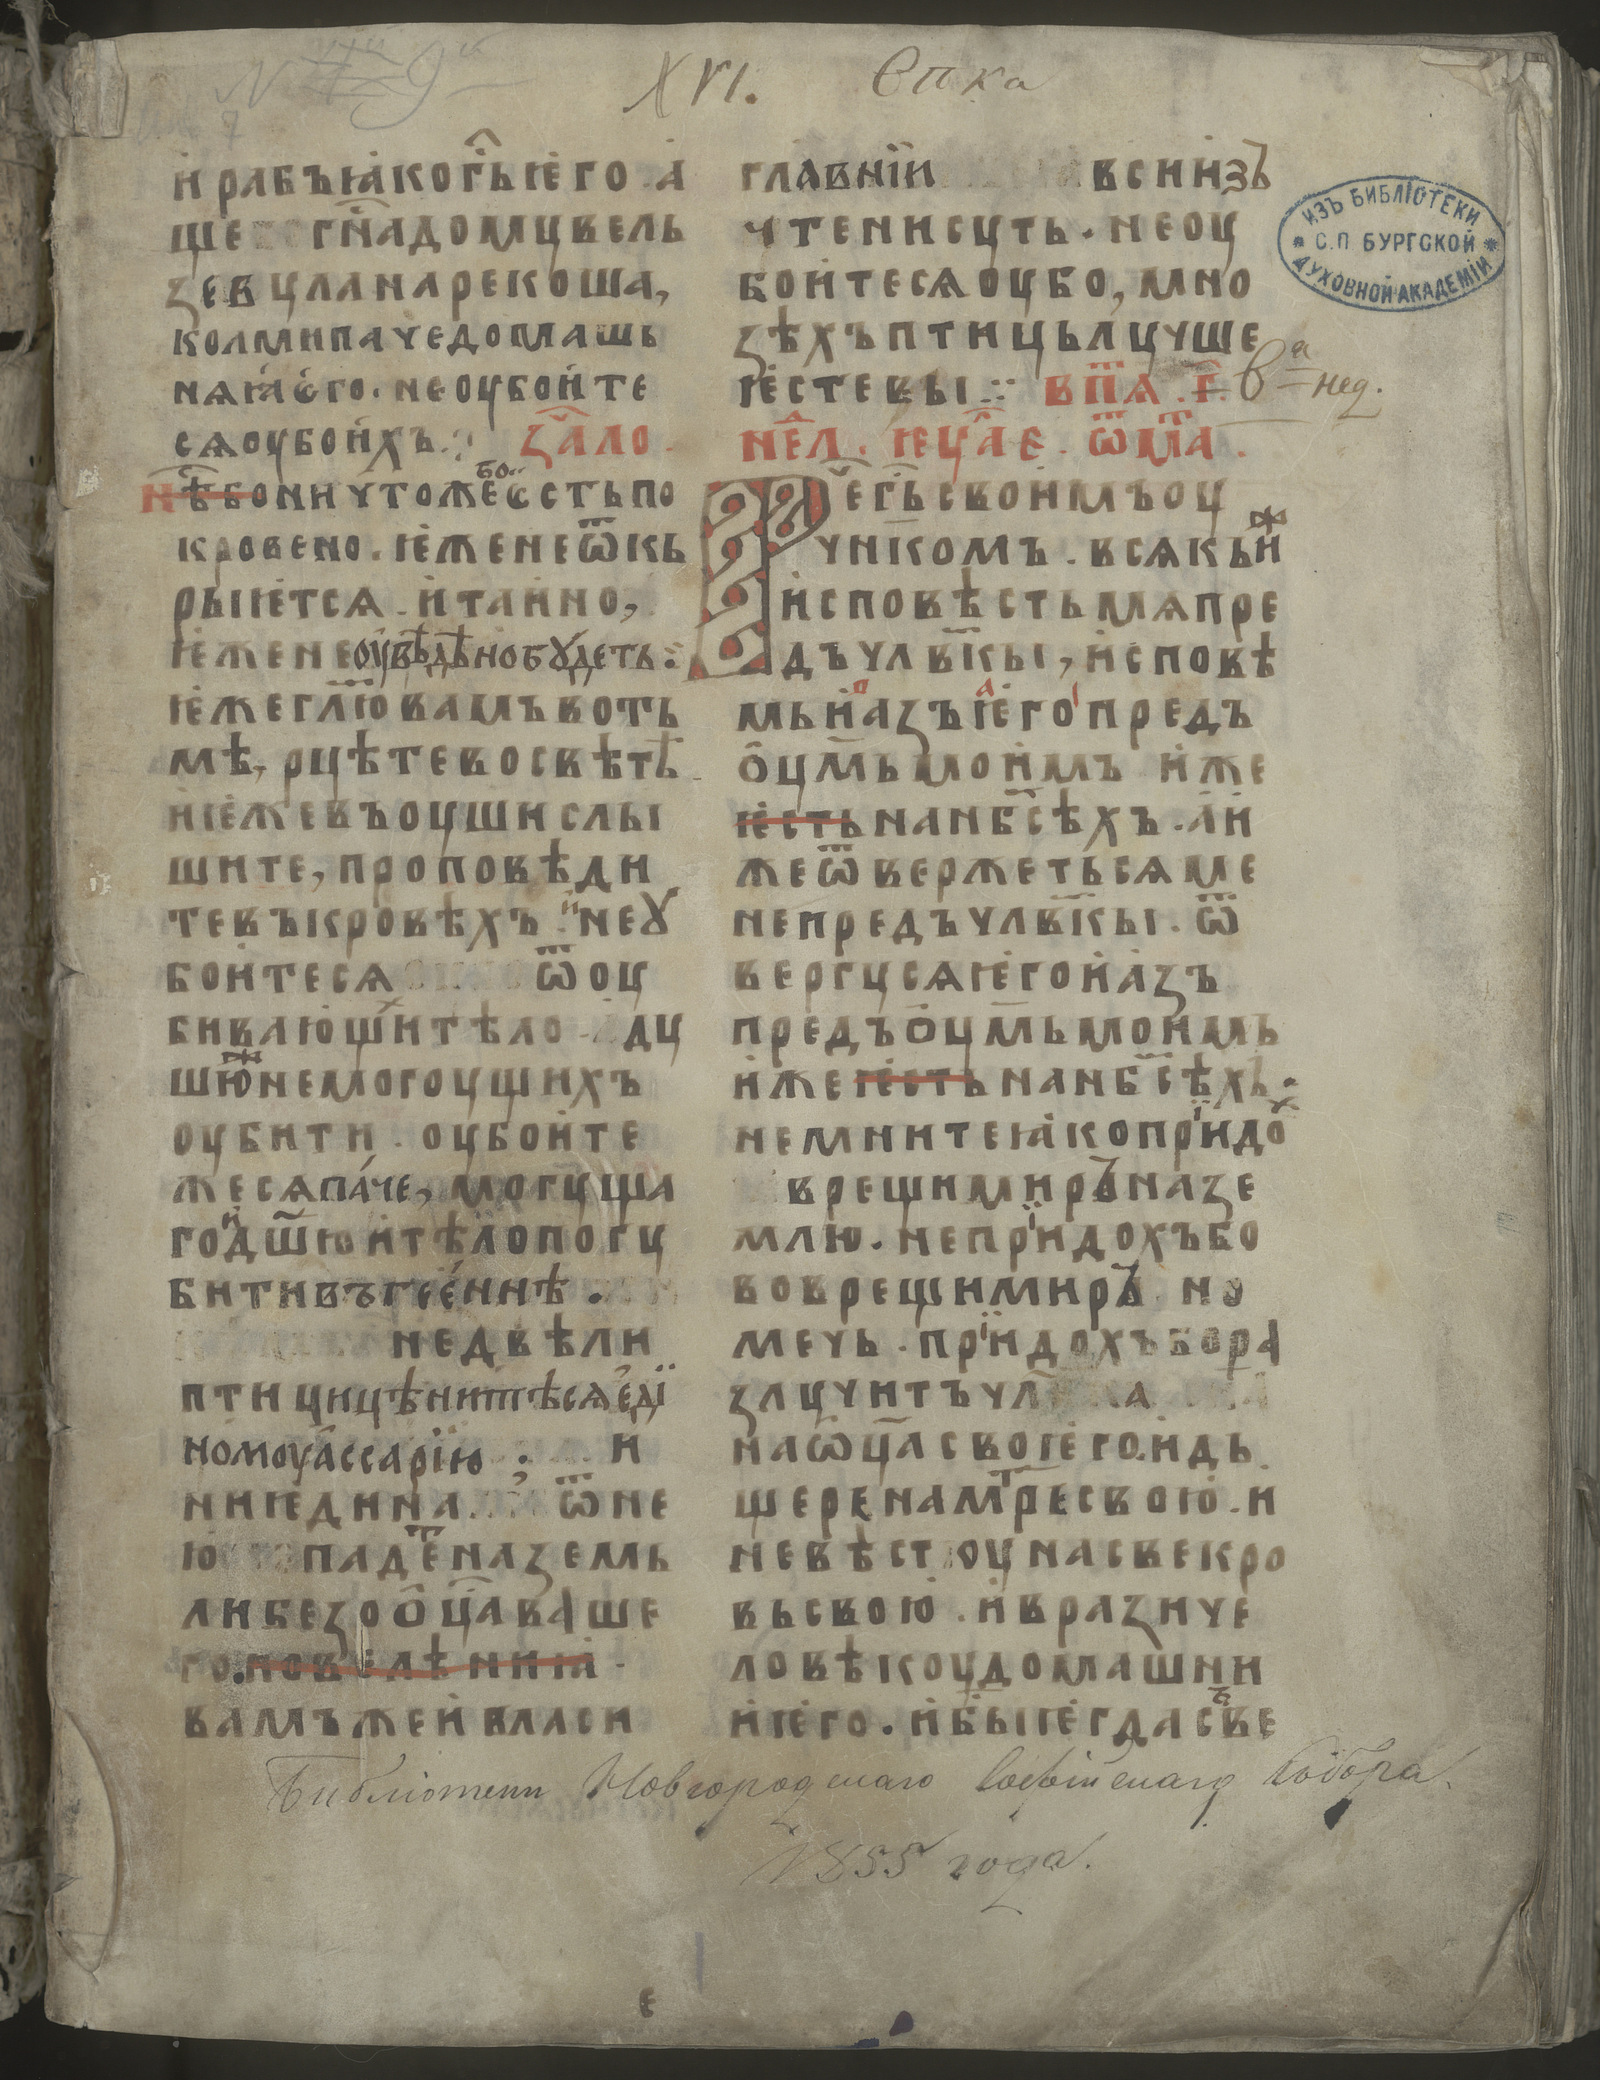 XVI. Епка
и рабъ ꙗко г҃ь ѥго а
ще г҃на дому вель
зевула нарекоша,
колми паче домашь
няꙗ ѥго. не оубоите
ся оубо ихъ. за҃ло.
нѣ бо ничтоже бо єсть по
кровено. ѥже не ѿкь
рыѥтся. и таино,
ѥже не оувѣдѣно бꙋдеть:
ѥже гл҃ю вамъ во ть
мѣ, рцѣте во свѣтѣ
и ѥже въ оуши слы
шите, проповѣди
те въ кровѣхъ. и не ꙋ
боитеся ѿ оу
бивающи тѣло ду
шю же не могоущихъ
оубити. оубоите
же ся па́че, могуща
го и дш҃ю и тѣло погу
бити въ геѐннѣ.
не двѣ ли
птици цѣнитѣся єді
ному ассарїю; и
ни ѥдина ѿ не
ю падеть на земь
ли безо о҃ца ваше
го. повелѣниꙗ.
вамъ же и власи
главнїи вси изъ
чтени суть. не оу
боитеся оубо, мно
зѣхъ птиць лучше
ѥсте вы :· в п҃я. г҃. в҃а нед.
не҃л. ѥу҃а є. ѿ м҃а.
Рече г҃ь своимъ оу
чн҃комъ. всякъ иж
исповѣсть мя пре
дъ чл҃вкы, исповѣ
мь и азъ ѥго предъ
о҃цмь моимъ иже
ѥсть на нб҃сѣхъ. а и
же ѿвержеться ме
не предъ чл҃вкы. ѿ
вергуся ѥго и азъ
предъ о҃цмь моимь
иже ѥсть на нб҃сѣхъ:
не мните ꙗко прїидохъ
врещи миръ на зе
млю. не прїидохъ бо
воврещи миръ но
мечь. прїидохъ бо ра
злучитъ чл҃ка
на ѿц҃а своѥго. и дь
щере на мт҃ре свою. и
невѣстоу на свекро
вь свою. и врази че
ловѣкоу домашни
и ѥго. и бы ѥгда съве
Библіотеки Новгородскаго Софійскаго Собора.
1855 года.
є
ИЗЪ БИБЛІОТЕКИ
С.П БУРГСКОЙ
ДУХОВНОЙ АКАДЕМІИ